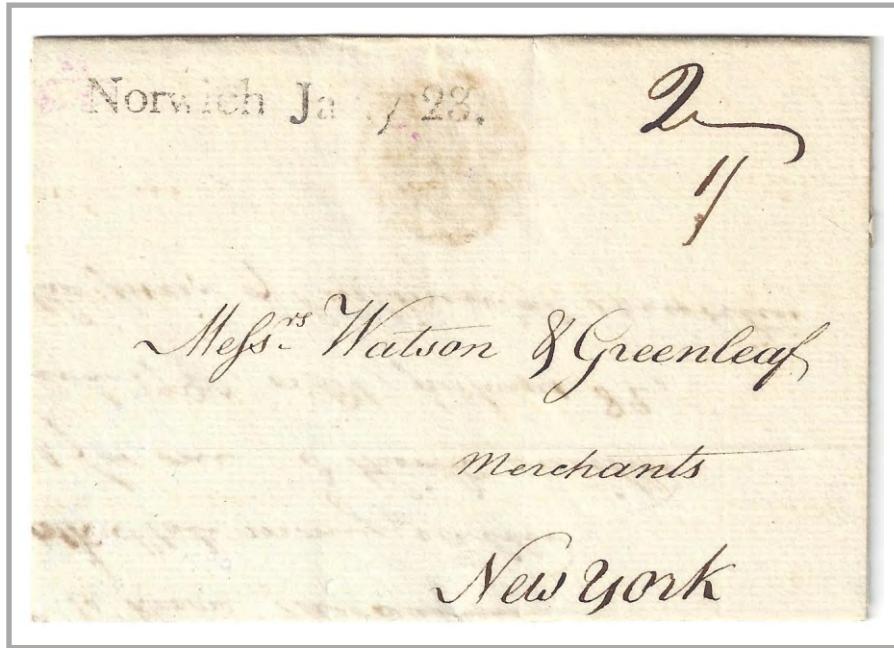 Norwich Ja y 23.
2
1/
Messrs Watson & Greenleaf
Merchants
New York